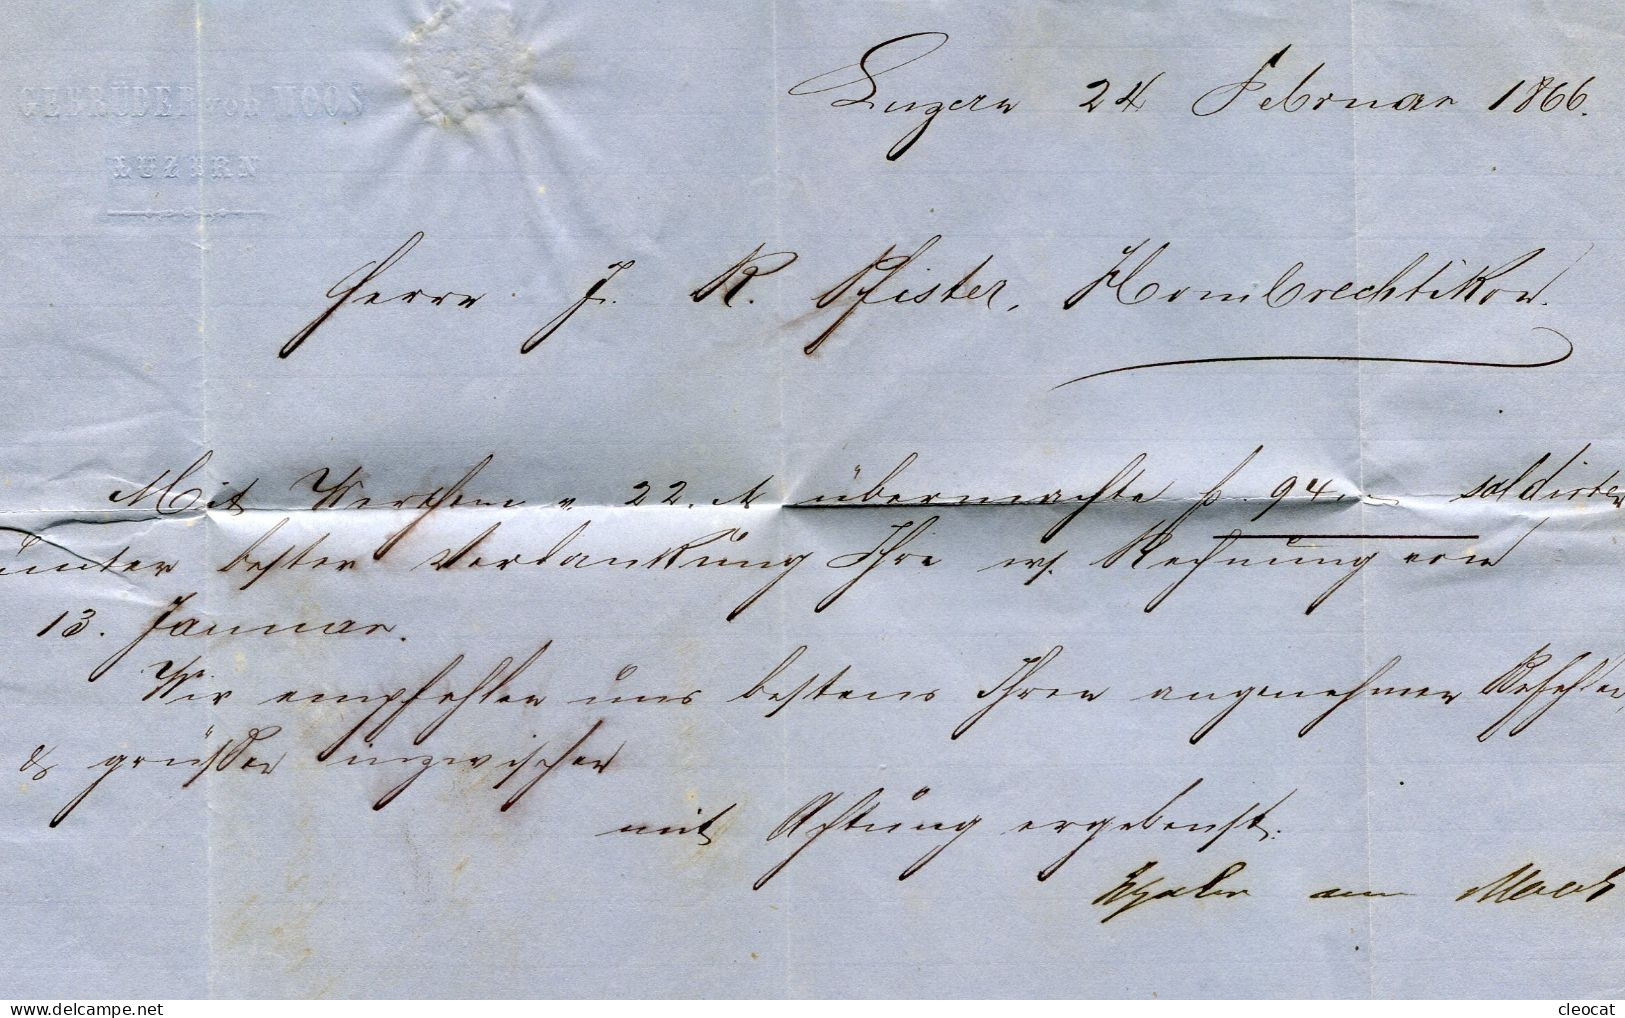 GEBRÜDER von MOOS
LUZERN
Luzern 24 Februar 1866.
Herrn J. R. Pfister, Hombrechtikon.
Mit Werthem v. 22. übermachte f. 94. soldirten
unter bester Verdankung Ihre Rechnung von
13. Januar.
Wir empfehlen uns bestens Ihren angenehmen Befehlen
& grüßen inzwischen
mit Achtung ergebenst.
cleocat